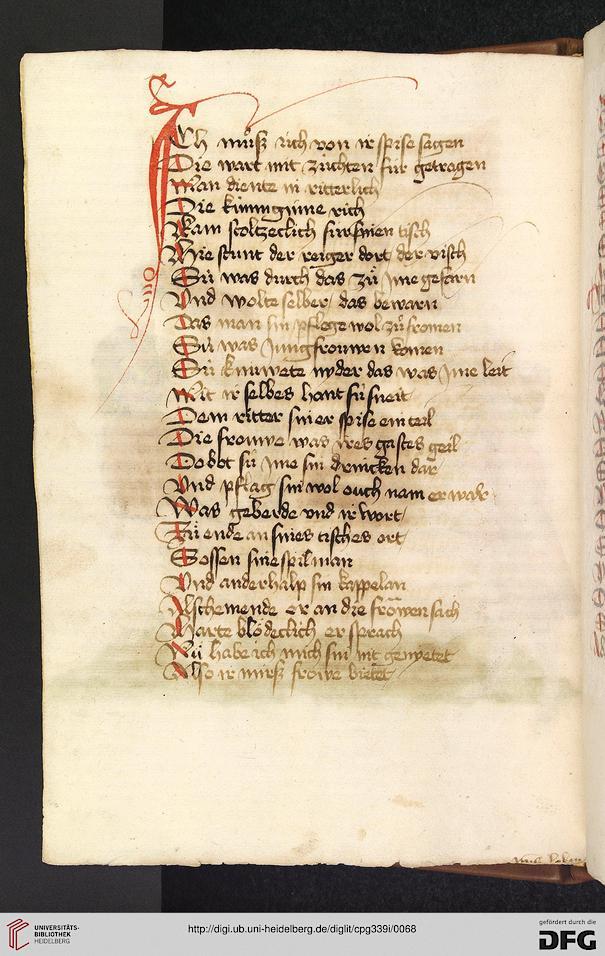 Ich muͤsz uͥch von ir spise sagen
Die wart mit zuͤchten fúr getragen
Man diente in ritterlich
Die kúniginne rich
Kam stoltzeclich fúr sinen tisch
Hie stunt der reiger dort der visch
Sú was durch das zuͦ Ime gefarn
Vnd wolte selber das bewarn
Das man sin pflege wol zuͦ fromen
Sú was Jungfrouwen komen
Sú knuwete nyder das was Ime leit
Mit ir selbes hant sú sneit
Dem ritter siner spise ein teil
Die frouwe was ires gastes geil
Do bot sú Ime sin drincken dar
Vnd pflag sin wol ouch nam er war
Was geberde vnd ir wort
Zuͤ ende an sines tisches ort
Sossen sine spilman
Vnd anderhalp sin kappelan
Alschemende er an die froͧwen sach
Harte bloͤdeclich er sprach
Nuͤ habe ich mich sin nit gewetet
Also ir muͤsz froͧwe bietet
UNIVERSITÄTS-
BIBLIOTHEK
HEIDELBERG
http://digi.ub.uni-heidelberg.de/diglit/cpg339i/0068
gefördert durch die
DFG